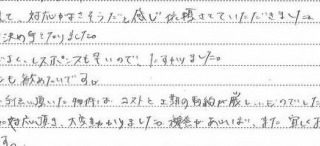 て、対応できそうだと感じ依頼させていただきました。
決め手となりました。
よく、レスポンスも早いので、たすかりました。
も勧めたいです。
引い頂いた物件は、コストと工期の制約が厳しいものでした
に対応頂き、大変たすかりました。機会があれば、また宜しくお
す。